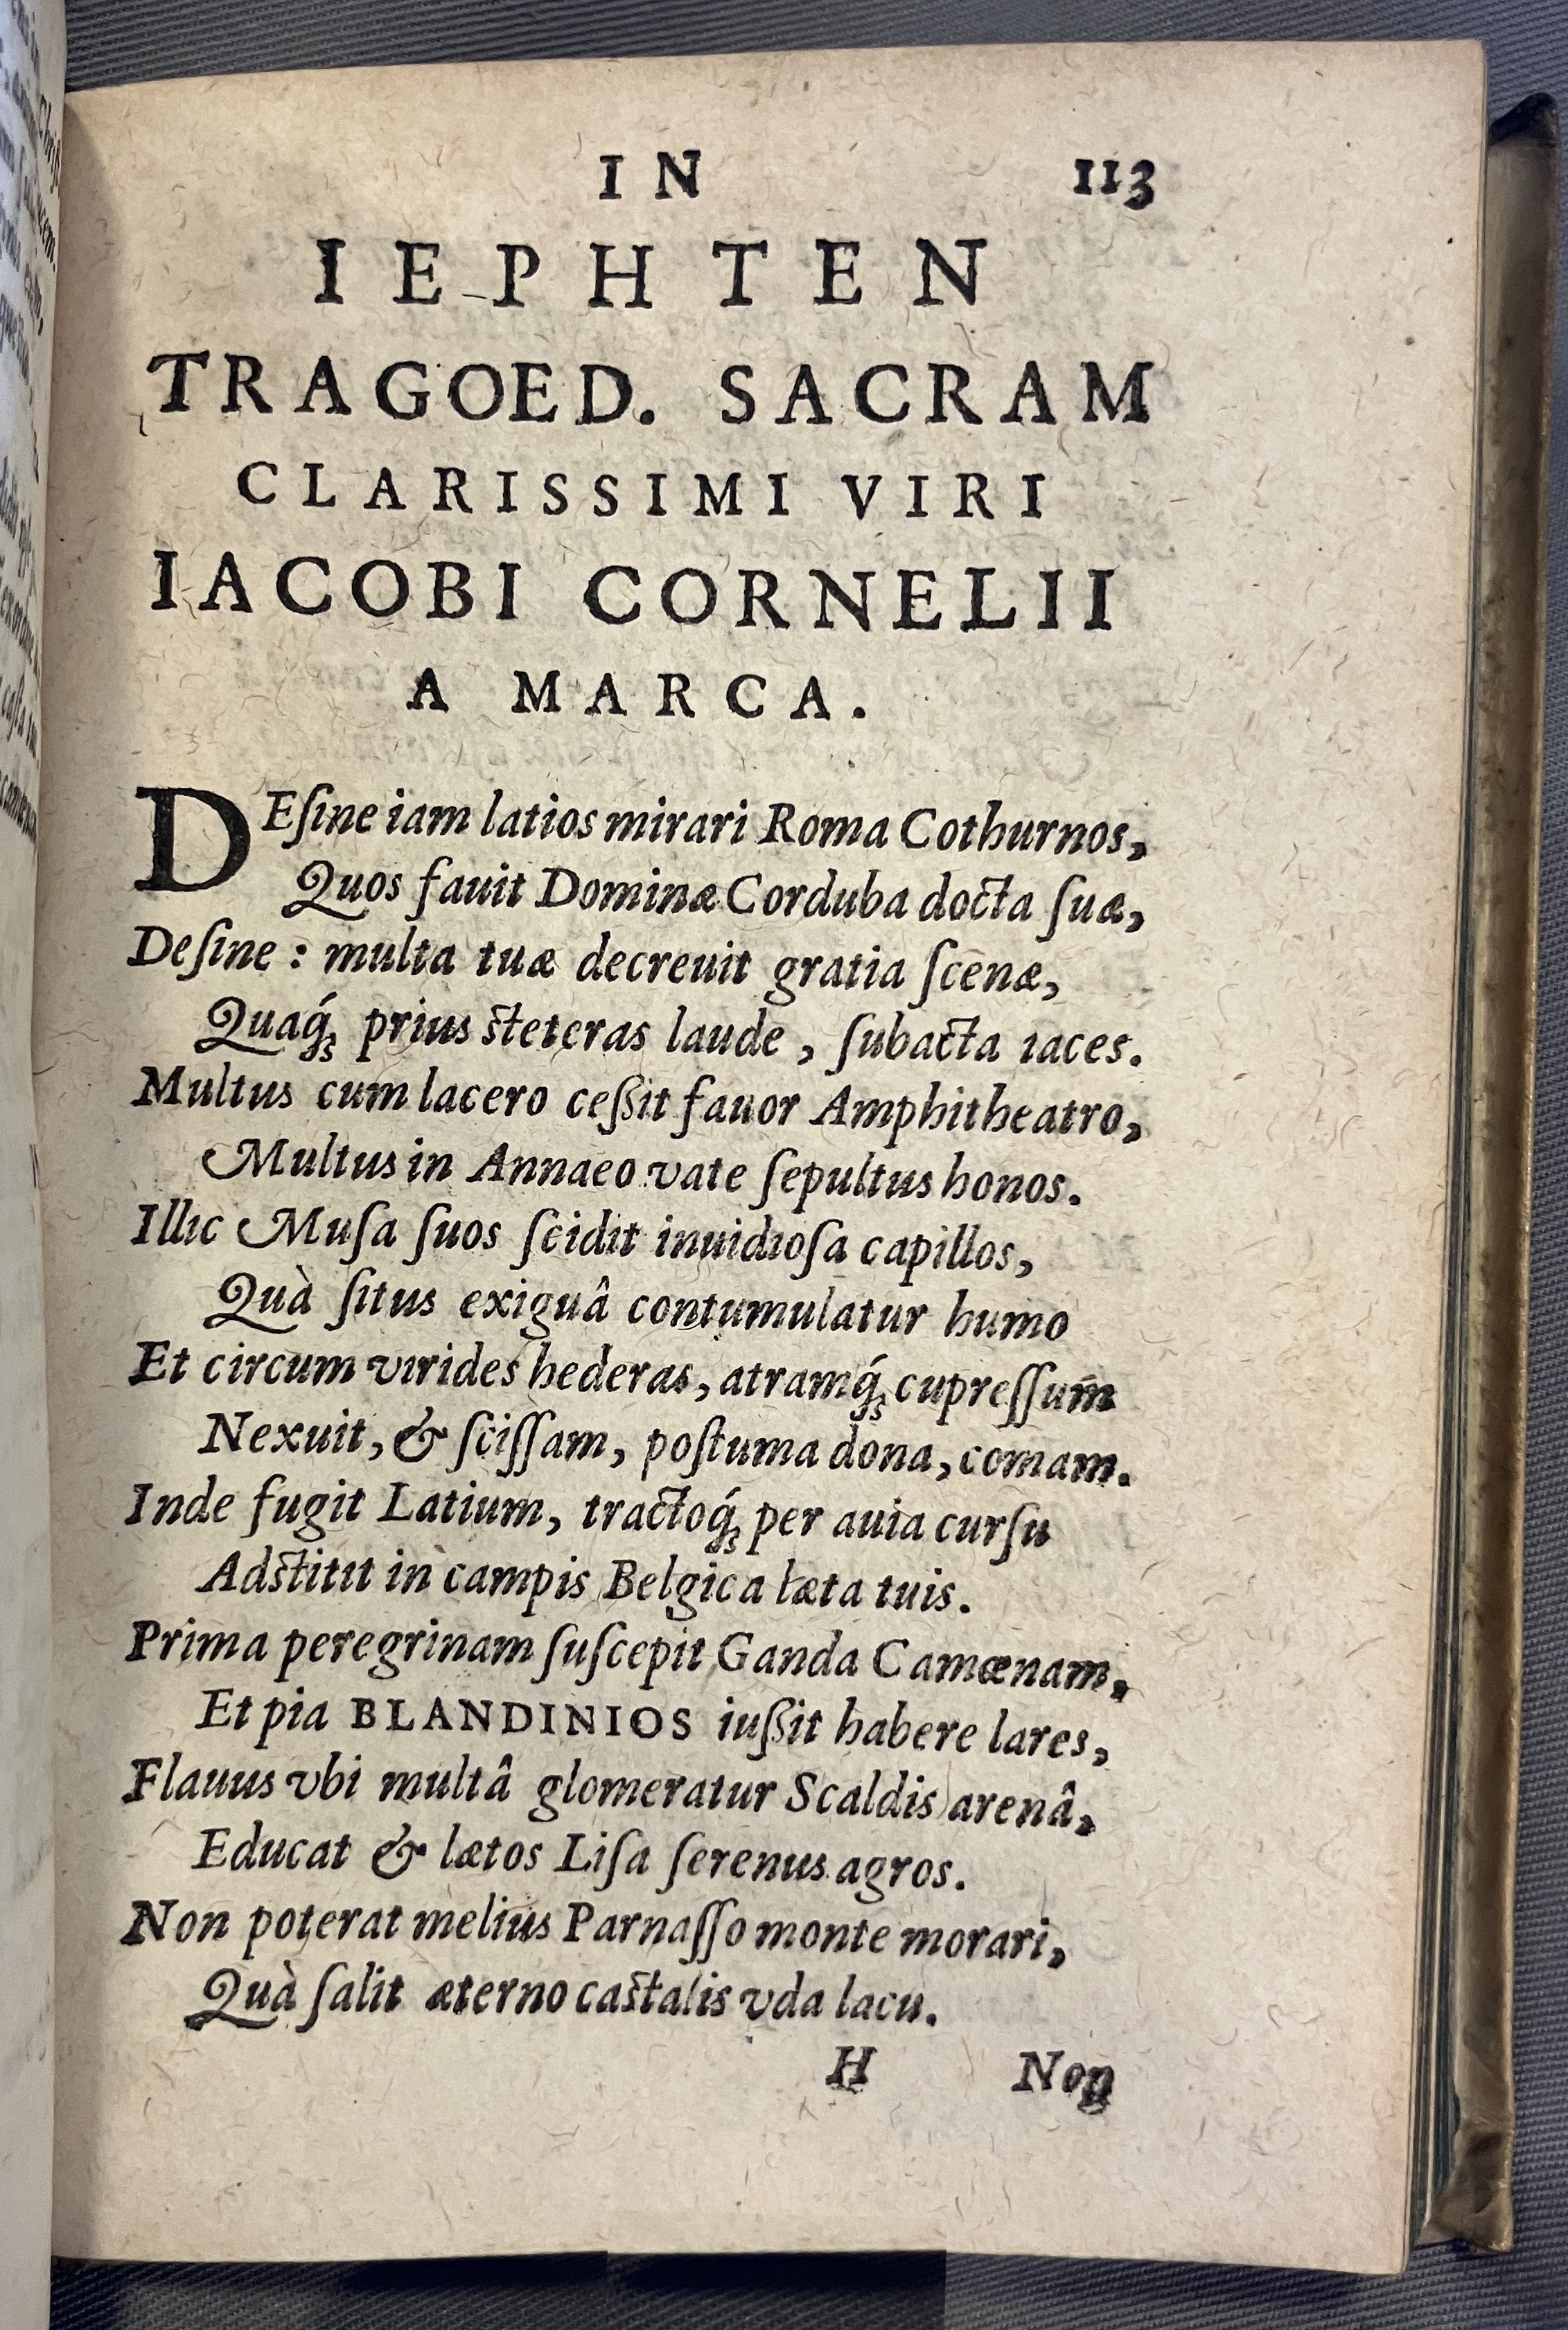 IN 113
IEPHTEN
TRAGOED. SACRAM
CLARISSIMI VIRI
IACOBI CORNELII
A MARCA.
DEſine iam latios mirari Roma Cothurnos,
Quos fauit Dominæ Corduba docta ſuæ,
Deſine : multa tuæ decreuit gratia ſcenæ,
Quaq́; prius ſteteras laude , ſubacta iaces.
Multus cum lacero ceßit fauor Amphitheatro,
Multus in Annaeo vate ſepultus honos.
Illic Muſa ſuos ſcidit inuidioſa capillos,
Quà ſitus exiguâ contumulatur humo
Et circum virides hederas, atramq́; cupreſſum
Nexuit, & ſciſſam, poſtuma dona, comam.
Inde fugit Latium, tractoq́; per auia curſu
Adſtitit in campis Belgica læta tuis.
Prima peregrinam ſuſcepit Ganda Camœnam,
Et pia BLANDINIOS iußit habere lares,
Flauus vbi multâ glomeratur Scaldis arenâ,
Educat & lætos Liſa ſerenus agros.
Non poterat meliùs Parnaſſo monte morari,
Quà ſalit æterno caſtalis vda lacu.
H Non